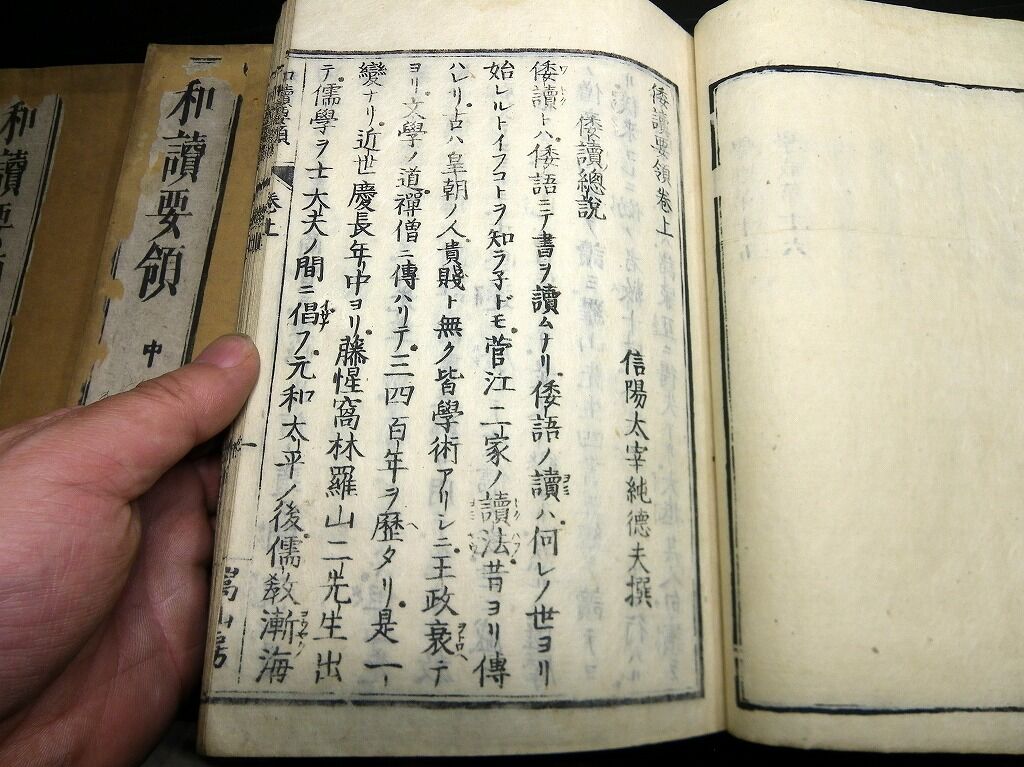 倭讀要領卷上
信陽太宰純德夫撰
倭讀總說
倭讀トハ倭語ニテ書ヲ讀ムナリ倭語ノ讀ハ何レノ世ヨリ
始レルトイフコトヲ知ラ子ドモ菅江二家ノ讀法昔ヨリ傳
ハレリ古ハ皇朝ノ人貴賤ト無ク皆學術アリシニ王政衰テ
ヨリ文學ノ道禪僧ニ傳ハリテ三四百年ヲ歷タリ是一
變ナリ近世慶長年中ヨリ藤惺窩林羅山二先生出
テ儒學ヲ士大夫ノ間ニ倡フ元和太平ノ後儒敎漸海
和讀要領
卷上
一
嵩山房
和讀要領
中
和讀要領